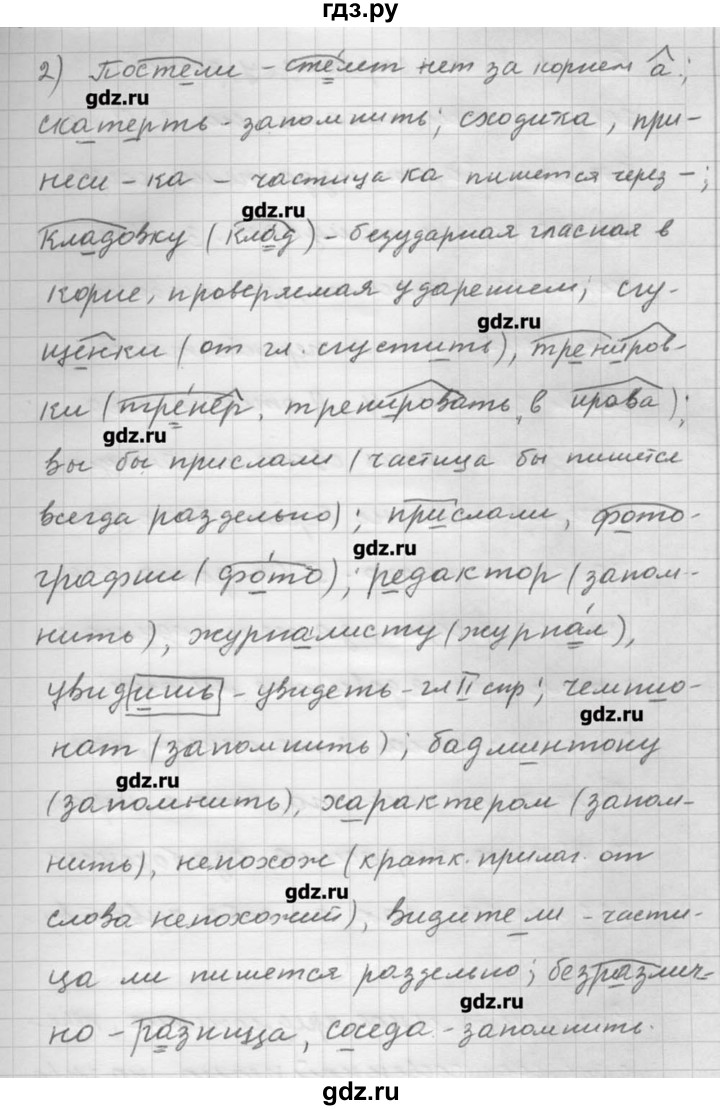 гдз.ру
2) Постели - стелет нет за корнем а;
gdz.ru
скатерть - запомнить; сходика, при-
неси - ка - частица ка пишется через -;
gdz.ru
кладовку (клад) - безударная гласная в
корне, проверяемая ударением; сгу-
gdz.ru
щёнки (от гл. сгустить), трениров-
ки (тренер, тренировать, в ирова);
gdz.ru
вы бы прислали (частица бы пишется
всегда раздельно); прислали, фото-
gdz.ru
графии (фото); редактор (запом-
нить), журналисту (журнал),
увидишь - увидеть - гл II спр; чемпио-
gdz.ru
нат (запомнить); бадминтону
gdz.ru
(запомнить), характером (запом-
нить), непохож (кратк. прилаг. от
gdz.ru
слова непохожий), видите ли - части-
ца ли пишется раздельно; безразлич-
gdz.ru
но - разница, соседа - запомнить.
gdz.ru